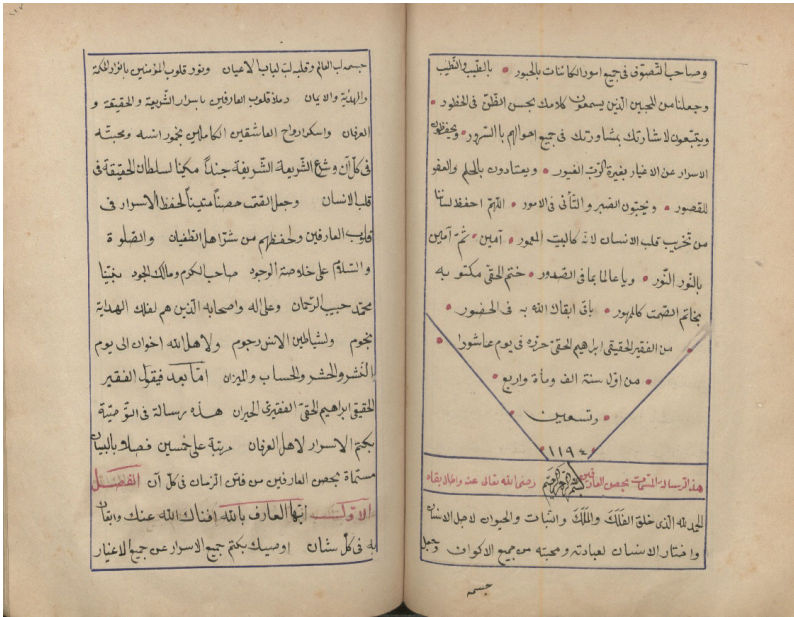 وصاحب التصوّف فى جميع امور الكائنات بالحبور • بالقلب والطيب
وجعلنا من المحبين الذين يسمعون كلامك بحسن الظنّ فى الخلود •
ويتبعون لاشارتك بمشاورتك فى جميع احوالهم باالسرور • ويحفظون
الاسرار عن الاغيار بغيرة الغيور • ويعتادون بالحلم والعفو
للقصور • ويحبّون الصبر والتأنى فى الامور • اللّهمّ احفظ لساننا
من تخريب قلب الانسان لانّه كالبيت المعمور • آمين • ثمّ آمين
بالنّور النّور • ويا عالما بما فى الصدور • ختم الحقّى مكتوبه
بخاتم الصّمت كالمهور • باقى ابقاك الله به فى الحضور •
• من الفقير الحقيقى ابراهيم الحقّى حرّره فى يوم عاشورا •
• من اوّل سنة الف ومأة واربع •
• وتسعين •
• ١١٩٤ •
هذه الرسالة المسمّات بحصن العارفين رضى الله تعالى عنه واطال بقاه
بسم الله الرحمن الرحيم
الحمد لله الذى خلق الفَلَكَ والمَلَكَ والنبات والحيوان لاجل الانسان
واختار الانسان لعبادته ومحبته من جميع الاكوان وجعل
جسمه
جسمه لب العالم وقلبه لبّ لباب الاعيان ونوّر قلوب المؤمنين بانوار الحكمة
والهداية والايمان وملأ قلوب العارفين باسرار الشّريعة والحقيقة و
العرفان واسكر ارواح العاشقين الكاملين بخمور انسه ومحبّته
فى كلّ آن وشرع الشّريعة الشّريفة جنداً مكيناً لسلطان الحقيقة فى
قلب الانسان وجعل الصّمت حصناً متيناً لحفظ الاسرار فى
قلوب العارفين ولحفظهم من شرّ اهل الطغيان والصّلوة
والسّلام على خلاصة الوجود صاحب الكرم ومالك الجود نبيّنا
محمّد حبيب الرّحمان وعلى اله واصحابه الّذين هم لفلك الهداية
نجوم ولشياطين الانس رجوم ولاهل الله اخوان الى يوم
النّشر والحشر والحساب والميزان امّا بعد فيقول الفقير
الحقيقى ابراهيم الحقّى الفقيرى الحيران هذه رسالة فى التّوصيّة
بكتم الاسرار لاهل العرفان مرتبة على خمسين فصلا بالبيان
مسمّاة بحصن العارفين من فتن الزمان فى كلّ آن الفصل
الاوّل ايّها العارف بالله افناك الله عنك وابقاك
به فى كلّ شان اوصيك بكتم جميع الاسرار عن جميع الاغيار